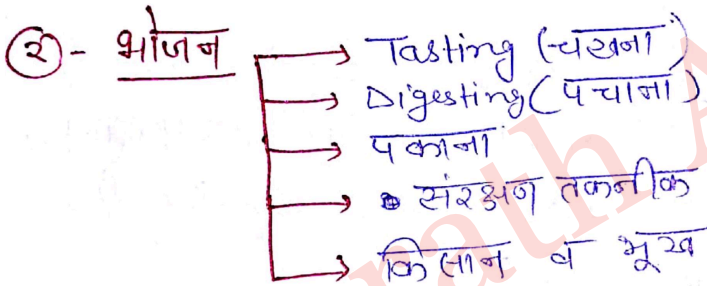 (२)- भोजन
Tasting (चखना)
Digesting (पचाना)
पकाना
संरक्षण तकनीक
किसान व भूख